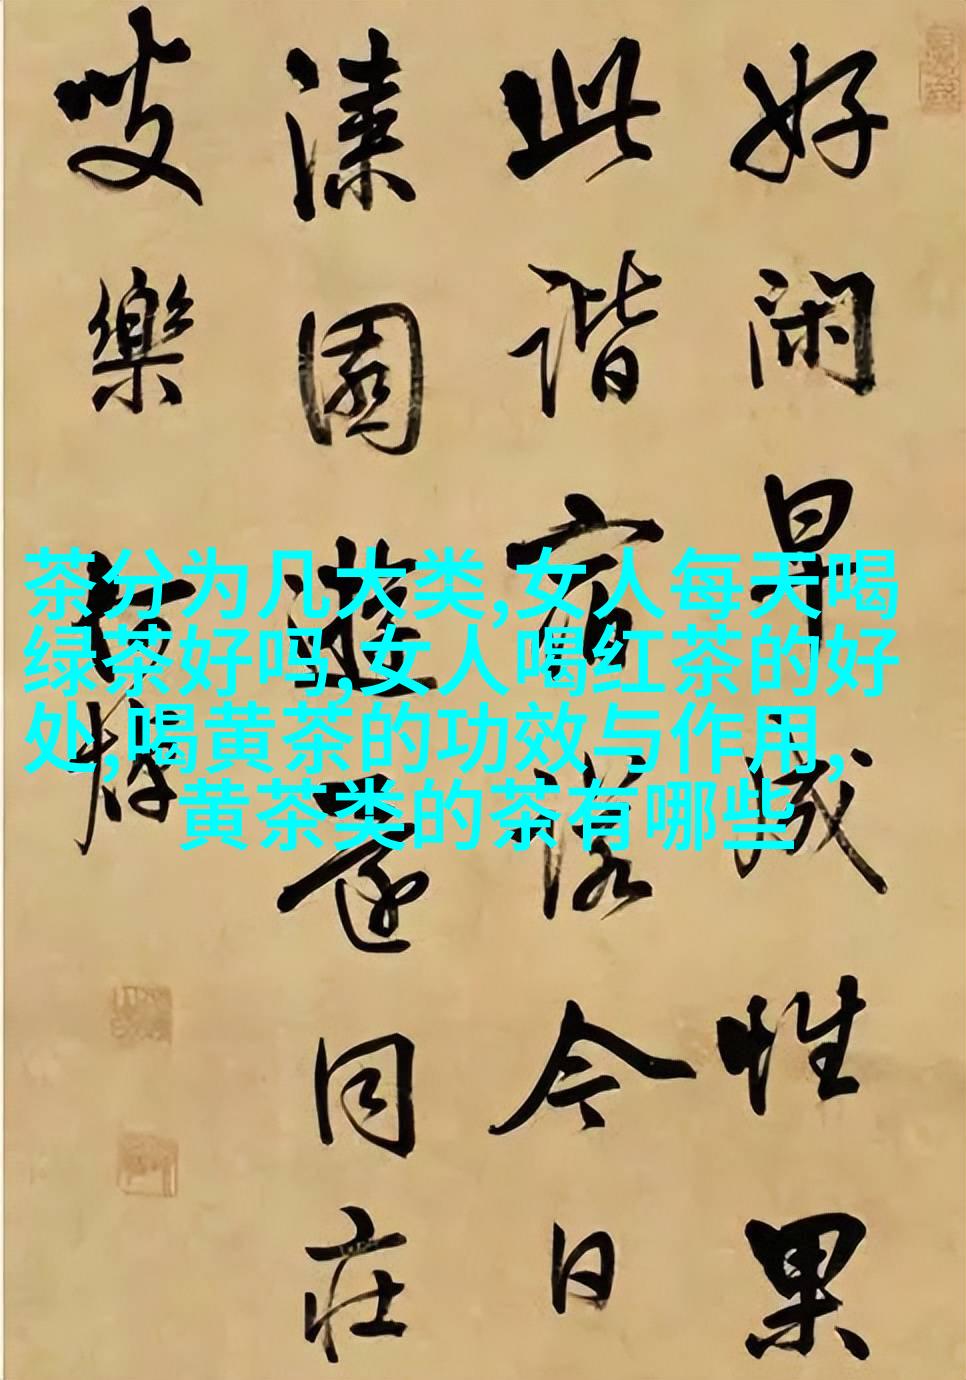 好閑早成性果
此諧宿諾今日
漆園遊還同庄
叟樂
茶分为几大类,女人每天喝
绿茶好吗,女人喝红茶的好
处,喝黄茶的功效与作用,
黄茶类的茶有哪些